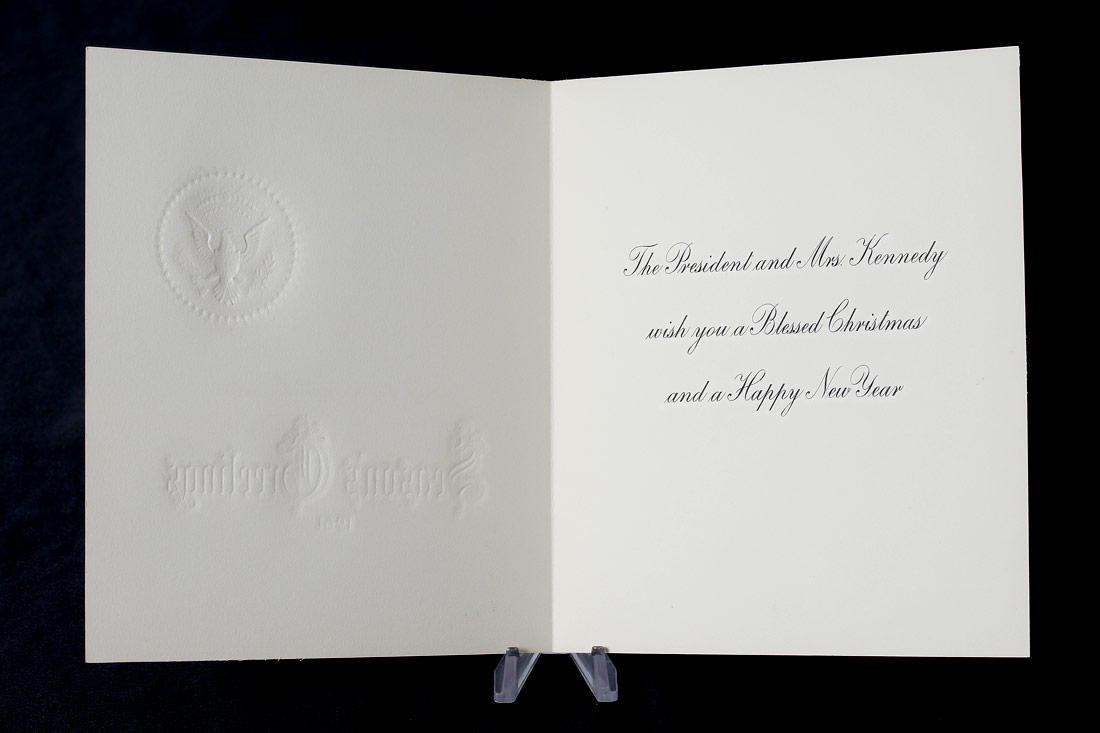 Season's Greetings
1961
The President and Mrs. Kennedy
wish you a Blessed Christmas
and a Happy New Year